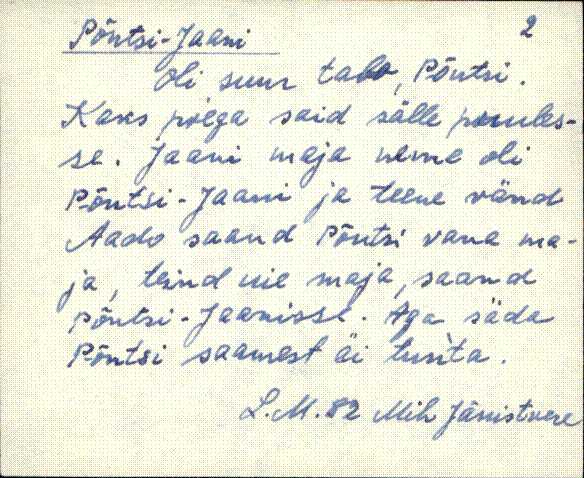 Põntsi-Jaani 2
Oli suur talo, Põntsi.
Kaks poega said sälle poules-
se. Jaani maja neme oli
Põntsi-Jaani ja teene vänd
Aado saand Põntsi vana ma-
ja, teind uie maja, saand
Põntsi-Jaanisse. Aga säda
Põntsi saamest äi tunta.
L.M. 82 Mih Jänistvere